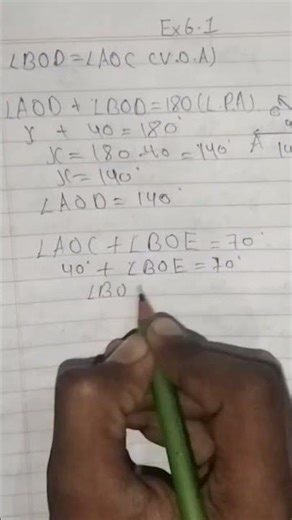 Ex 6.1
∠BOD = ∠AOC (V.O.A)
∠AOD + ∠BOD = 180 (L.P.A)
x + 40 = 180°
x = 180 - 40 = 140°
x = 140°
∠AOD = 140°
A
∠AOC + ∠BOE = 70°
40° + ∠BOE = 70°
∠BO